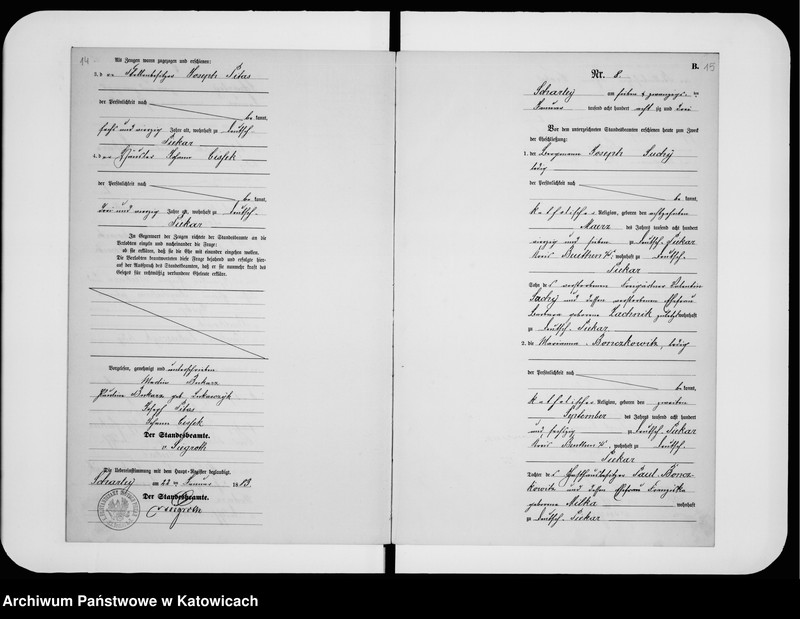 14
Als Zeugen waren zugezogen und erschienen:
3. der Stellenbesitzer Joseph Pitas
der Persönlichkeit nach
be kannt,
sechs und vierzig Jahre alt, wohnhaft zu Deutsch-
Piekar
4. der Häusler Johann Cissek
der Persönlichkeit nach
be kannt,
drei und vierzig Jahre alt, wohnhaft zu Deutsch-
Piekar
In Gegenwart der Zeugen richtete der Standesbeamte an die
Verlobten einzeln und nacheinander die Frage:
ob sie erklären, daß sie die Ehe mit einander eingehen wollen.
Die Verlobten beantworteten diese Frage bejahend und erfolgte hier-
auf der Ausspruch des Standesbeamten, daß er sie nunmehr kraft des
Gesetzes für rechtmäßig verbundene Eheleute erkläre.
Vorgelesen, genehmigt und unterschrieben
Joseph Pitas
Johann Cissek
Der Standesbeamte.
Die Uebereinstimmung mit dem Haupt-Register beglaubigt.
Scharley am 22 ten Januar 1883.
Der Standesbeamte.
B.
15
Nr. 8.
Scharley am sieben & zwanzigsten
Januar tausend acht hundert acht zig und drei
Vor dem unterzeichneten Standesbeamten erschienen heute zum Zweck
der Eheschließung:
1. der Bergmann Joseph Suchy
ledig
der Persönlichkeit nach
be kannt,
katholischer Religion, geboren den
Maerz des Jahres tausend acht hundert
zu Deutsch-Piekar
Kreis Beuthen, wohnhaft zu Deutsch-
Piekar
Sohn des verstorbenen Valentin
Suchy und dessen verstorbenen Ehefrau
Barbara geborene Lachnik zuletzt wohnhaft
zu Deutsch-Piekar
2. die Marianna Bonczkowitz, ledig
der Persönlichkeit nach
be kannt,
katholischer Religion, geboren den zweiten
September des Jahres tausend acht hundert
und sechszig zu Deutsch-Piekar
Kreis Beuthen, wohnhaft zu Deutsch-
Piekar
Tochter des Paul Boncz-
kowitz und dessen Ehefrau Franziska
geborene Mitka wohnhaft
zu Deutsch-Piekar
Archiwum Państwowe w Katowicach